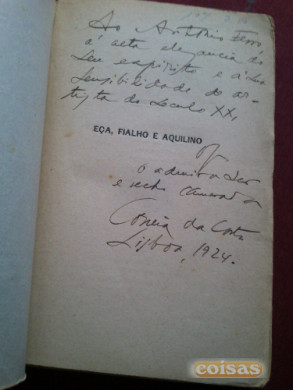 Ao António Ferro
á alta elegancia do
seu espirito e á sua
sensibilidade de ar-
tista do seculo XX,
EÇA, FIALHO E AQUILINO
of
o admirador
e velho camarada
Correia da Costa
Lisboa, 1924.
coisas